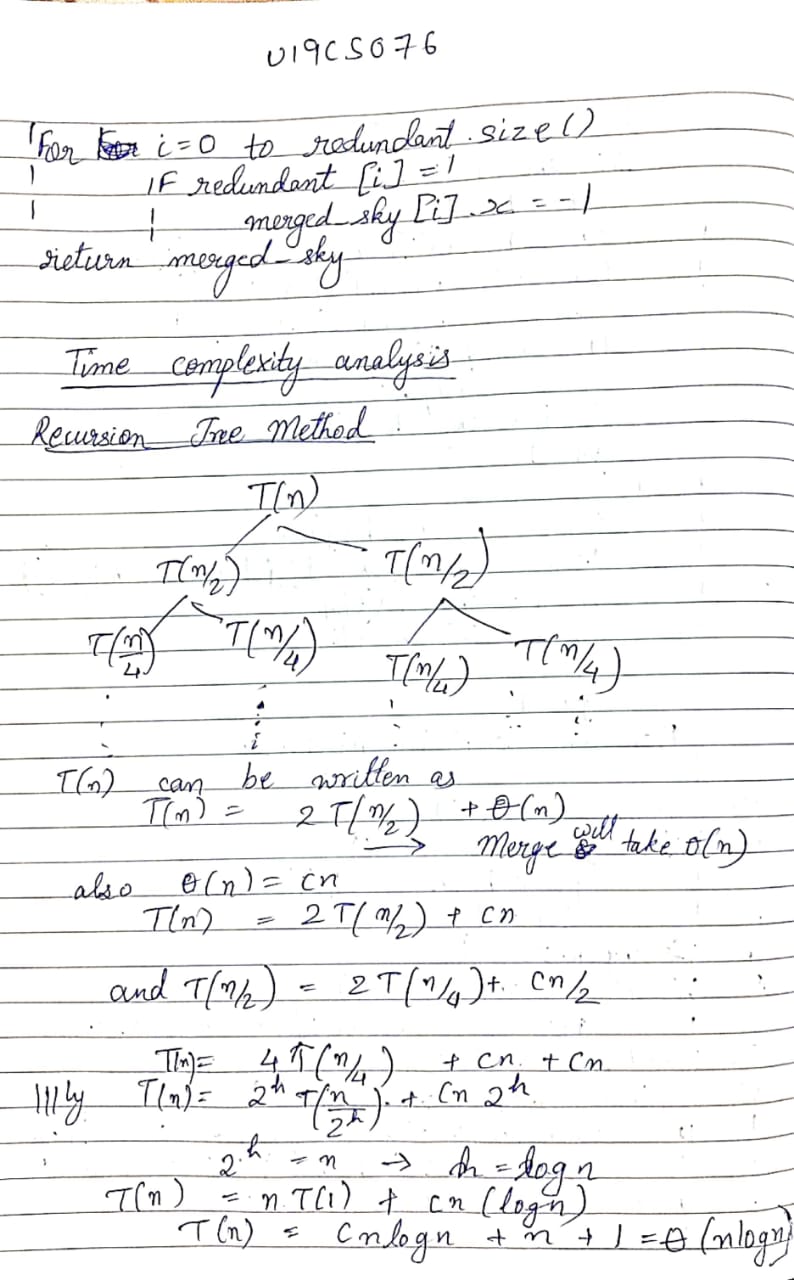 U19CS076
For i=0 to redundant.size()
IF redundant [i] = 1
merged_sky [i].x = -1
return merged_sky
Time complexity analysis
Recursion Tree Method
T(n)
T(n/2) T(n/2)
T(n/4) T(n/4) T(n/4) T(n/4)
T(n) can be written as
T(n) = 2T(n/2) + θ(n)
→ Merge will take θ(n)
also θ(n) = cn
T(n) = 2T(n/2) + cn
and T(n/2) = 2T(n/4) + cn/2
T(n) = 4T(n/4) + cn + cn
lllly T(n) = 2^h T(n/2^h) + cn 2^h
2^h = n → h = log n
T(n) = n.T(1) + cn (logn)
T(n) = Cnlogn + n + 1 = θ(nlogn)